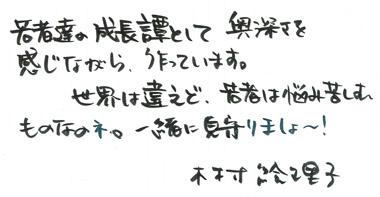 若者達の成長譚として奥深さを
感じながら、作っています。
世界は違えど、若者は悩み苦しむ
ものなのネ。一緒に見守りましょ〜!
木村絵理子